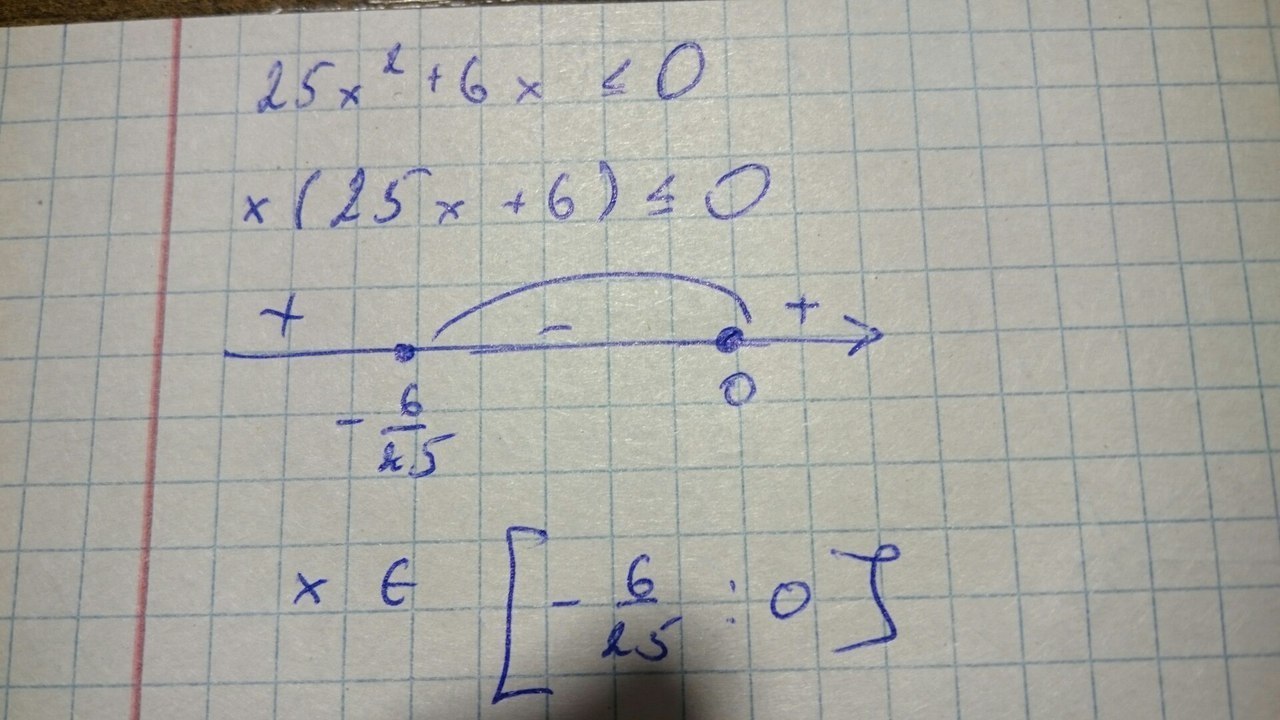 25x² + 6x ≤ 0
x(25x + 6) ≤ 0
+ - +
-6/25 0
x ∈ [-6/25 ; 0]